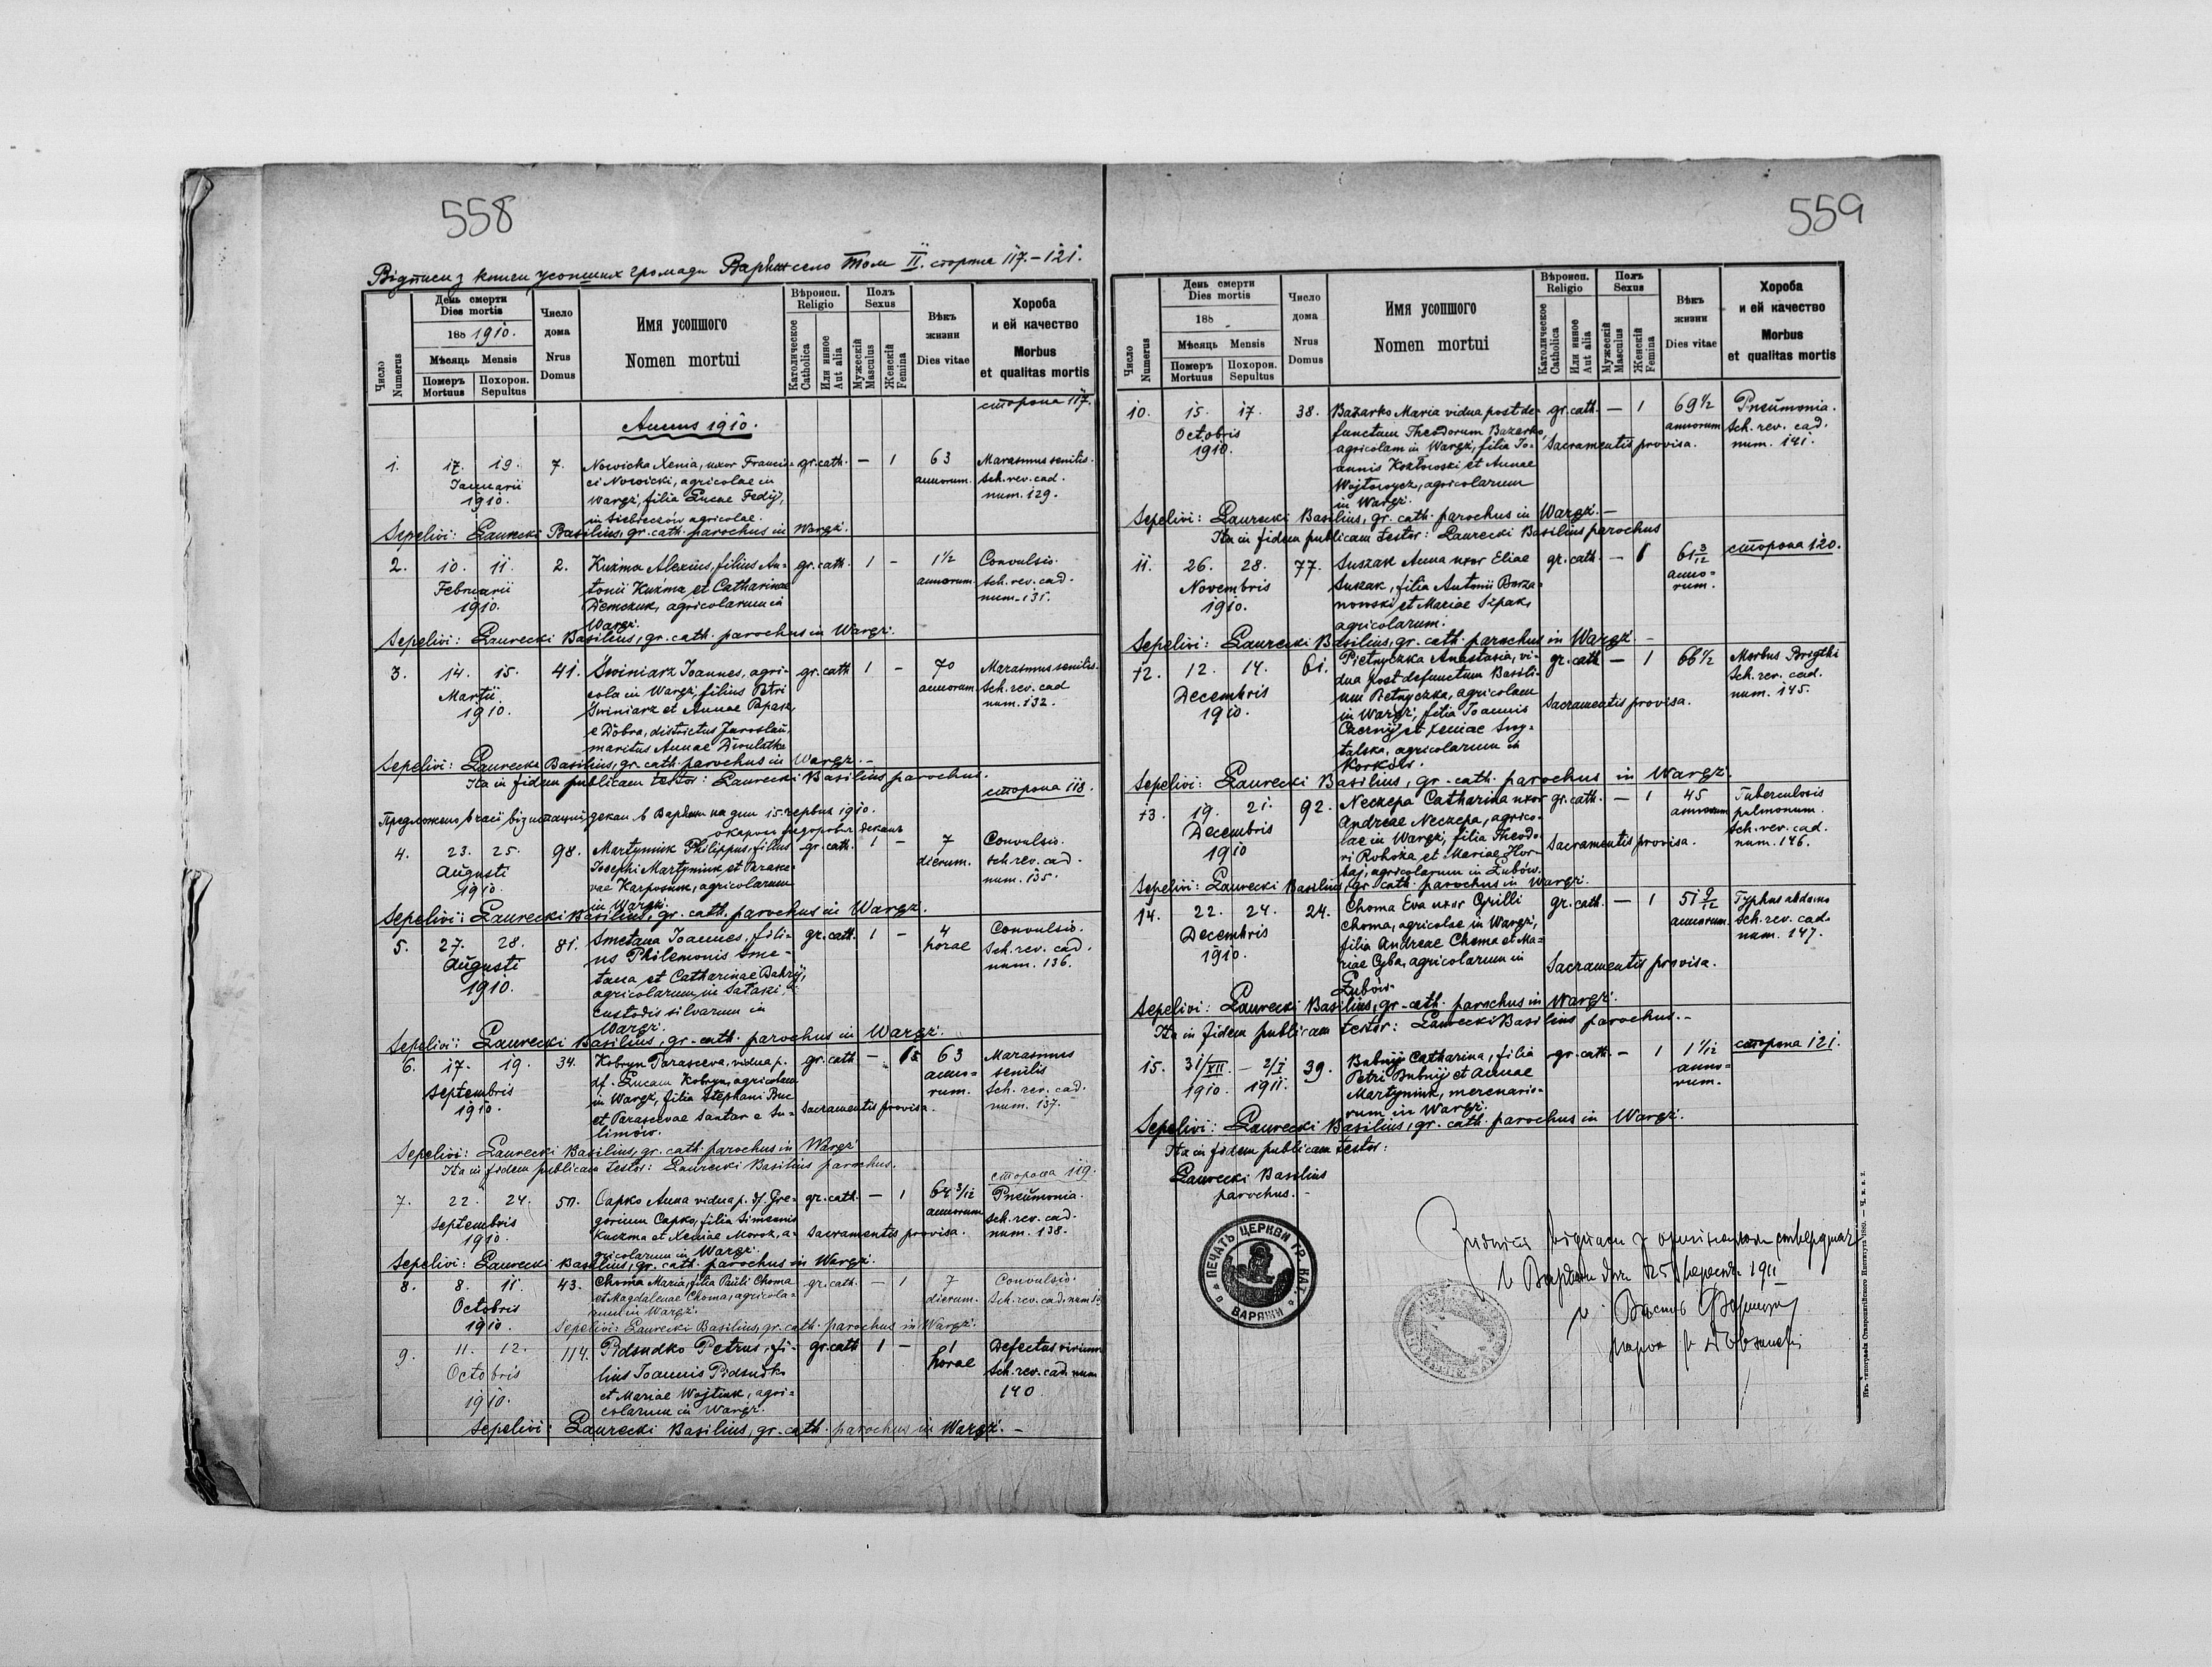 558
Відписи з книги усопших громади Варяж село Том II. сторона 117.-121.
Число Numerus
День смерти
Dies mortis
188 1910.
Мѣсяць Mensis
Померъ Mortuus
Похорон. Sepultus
Число дома
Nrus Domus
Имя усопшого
Nomen mortui
Вѣроисп. Religio
Католическое Catholica
Или инное Aut alia
Полъ Sexus
Мужескій Masculus
Женскій Femina
Вѣкъ жизни
Dies vitae
Хороба и ей качество
Morbus et qualitas mortis
сторона 117.
Annus 1910.
1. 17. 19. 7. Nowicka Xenia, uxor Francis= gr. cath. — 1 63 Marasmus senilis.
Januarii ci Nowicki, agricolae in annorum. Sch. rev. cad.
1910. Wargż, filia Lucae Fedij, num. 129.
in Siebieczów agricolae.
Sepelivi: Laurecki Basilius, gr. cath. parochus in Wargż.
2. 10. 11. 2. Kuźma Alexius, filius An= gr. cath. 1 — 1½ Convulsio.
Februarii tonii Kuźma et Catharinae annorum. Sch. rev. cad.
1910. Demczuk, agricolarum in num. 131.
Wargż.
Sepelivi: Laurecki Basilius, gr. cath. parochus in Wargż.
3. 14. 15. 41. Swiniarz Joannes, agri= gr. cath 1 — 70 Marasmus senilis.
Martii cola in Wargż, filius Petri annorum. Sch. rev. cad
1910. Swiniarz et Annae Papasz num. 132.
e Dobra, districtus Jaroslau,
maritus Annae
Sepelivi: Laurecki Basilius, gr. cath. parochus in Wargż. —
Ita in fidem publicam testor: Laurecki Basilius parochus.
сторона 118.
візитації декан. в Варяжи на дни 15. 1910.
деканъ
4. 23. 25. 98. Martyniuk Philippus, filius gr. cath. 1 — 7 Convulsio.
Augusti Josephi Martyniuk et Parasce= dierum. Sch. rev. cad.
1910. vae Karposiuk, agricolarum num. 135.
in Wargż.
Sepelivi: Laurecki Basilius, gr. cath. parochus in Wargż.
5. 27. 28. 81. Smetana Joannes, fili= gr. cath. 1 — 4 Convulsio.
Augusti us Philemonis Sme= horae Sch. rev. cad.
1910. tana et Catharinae Bahrij, num. 136.
agricolarum in Sataszi,
custodis silvarum in
Wargż.
Sepelivi: Laurecki Basilius, gr. cath. parochus in Wargż.
6. 17. 19. 34. Kobryn Parasceva, vidua p. gr. cath — 1 63 Marasmus
Septembris df. Lucam Kobryn, agricolam anno= senilis
1910. in Wargż, filia Stephani Buc rum. Sch. rev. cad.
et Parascevae Santar e Su= Sacramentis provisa. num. 137.
limów.
Sepelivi: Laurecki Basilius, gr. cath. parochus in Wargż
Ita in fidem publicam testor: Laurecki Basilius parochus.
сторона 119.
7. 22. 24. 50. Capko Anna vidua p. df. Gre= gr. cath. — 1 64 3/12 Pneumonia.
Septembris gorium Capko, filia Simeonis annorum Sch. rev. cad.
1910. Kuczma et Xeniae Moroz, a= Sacramentis provisa. num. 138.
gricolarum in Wargż.
Sepelivi: Laurecki Basilius, gr. cath. parochus in Wargż.
8. 8. 11. 43. Choma Maria, filia Pauli Choma gr. cath. — 1 7 Convulsio.
Octobris et Magdalenae Choma, agricola= dierum. Sch. rev. cad. num
1910. rum in Wargż.
Sepelivi: Laurecki Basilius, gr. cath. parochus in Wargż.
9. 11. 12. 114. Pidsudko Petrus, fi= gr. cath 1 — 1 Defectus virium
Octobris lius Joannis Pidsudko horae Sch. rev. cad. num
1910. et Mariae Wojtiuk, agri= 140
colarum in Wargż.
Sepelivi: Laurecki Basilius, gr. cath. parochus in Wargż. —
559
Число Numerus
День смерти
Dies mortis
188
Мѣсяць Mensis
Померъ Mortuus
Похорон. Sepultus
Число дома
Nrus Domus
Имя усопшого
Nomen mortui
Вѣроисп. Religio
Католическое Catholica
Или инное Aut alia
Полъ Sexus
Мужескій Masculus
Женскій Femina
Вѣкъ жизни
Dies vitae
Хороба и ей качество
Morbus et qualitas mortis
10. 15. 17. 38. Bazarko Maria vidua post de= gr. cath. — 1 69½ Pneumonia.
Octobris functum Theodorum Bazarko, annorum Sch. rev. cad.
1910. agricolam in Wargż, filia Jo= Sacramentis provisa. num. 141.
annis Kozłowski et Annae
Wojtowycz, agricolarum
in Wargż.
Sepelivi: Laurecki Basilius, gr. cath. parochus in Wargż. —
Ita in fidem publicam testor: Laurecki Basilius parochus
сторона 120.
11. 26. 28. 77. Suszak Anna uxor Eliae gr. cath. — 1 61 3/12
Novembris Suszak, filia Antonii Borza= anno=
1910. nowski et Mariae Szpak, rum.
agricolarum.
Sepelivi: Laurecki Basilius, gr. cath. parochus in Wargż. —
12. 12. 14. 61. Pietnyczka Anastasia, vi= gr. cath — 1 66½ Morbus Brigthi
Decembris dua post defunctum Basili= Sch. rev. cad.
1910. um Pietnyczka, agricolam Sacramentis provisa. num. 145.
in Wargż, filia Joannis
Czernij et Xeniae Smy=
talska, agricolarum in
Korków.
Sepelivi: Laurecki Basilius, gr. cath. parochus in Wargż.
13. 19. 21. 92. Neczepa Catharina uxor gr. cath. — 1 45 Tuberculosis
Decembris Andreae Neczepa, agrico= annorum pulmonum.
1910 lae in Wargż, filia Theodo= Sch. rev. cad.
ri Rohoza et Mariae Hor= Sacramentis provisa. num. 146.
baj, agricolarum in Łubów.
Sepelivi: Laurecki Basilius, gr. cath. parochus in Wargż.
14. 22. 24. 24. Choma Eva uxor Cyrilli gr. cath. — 1 51 9/12 Typhus abdomo
Decembris Choma, agricolae in Wargż, annorum. Sch. rev. cad.
1910. filia Andreae Choma et Ma= num. 147.
riae Cyba, agricolarum in Sacramentis provisa.
Łubów.
Sepelivi: Laurecki Basilius, gr. cath. parochus in Wargż.
Ita in fidem publicam testor: Laurecki Basilius parochus. —
сторона 121.
15. 31/XII. — 2/I 39. Bubnij Catharina, filia gr. cath. — 1 1 1/12
1910. 1911. Petri Bubnij et Annae anno=
Martyniuk, mercenario= rum.
rum in Wargż.
Sepelivi: Laurecki Basilius, gr. cath. parochus in Wargż.
Ita in fidem publicam testor:
Laurecki Basilius
parochus. —
ПЕЧАТЬ ЦЕРКВИ ГР. КАТ.
ВАРЯЖИ
відписи з оригіналом стверджає
в Варяжи дня 25 1911
Изъ типографіи Ставропигійского Института